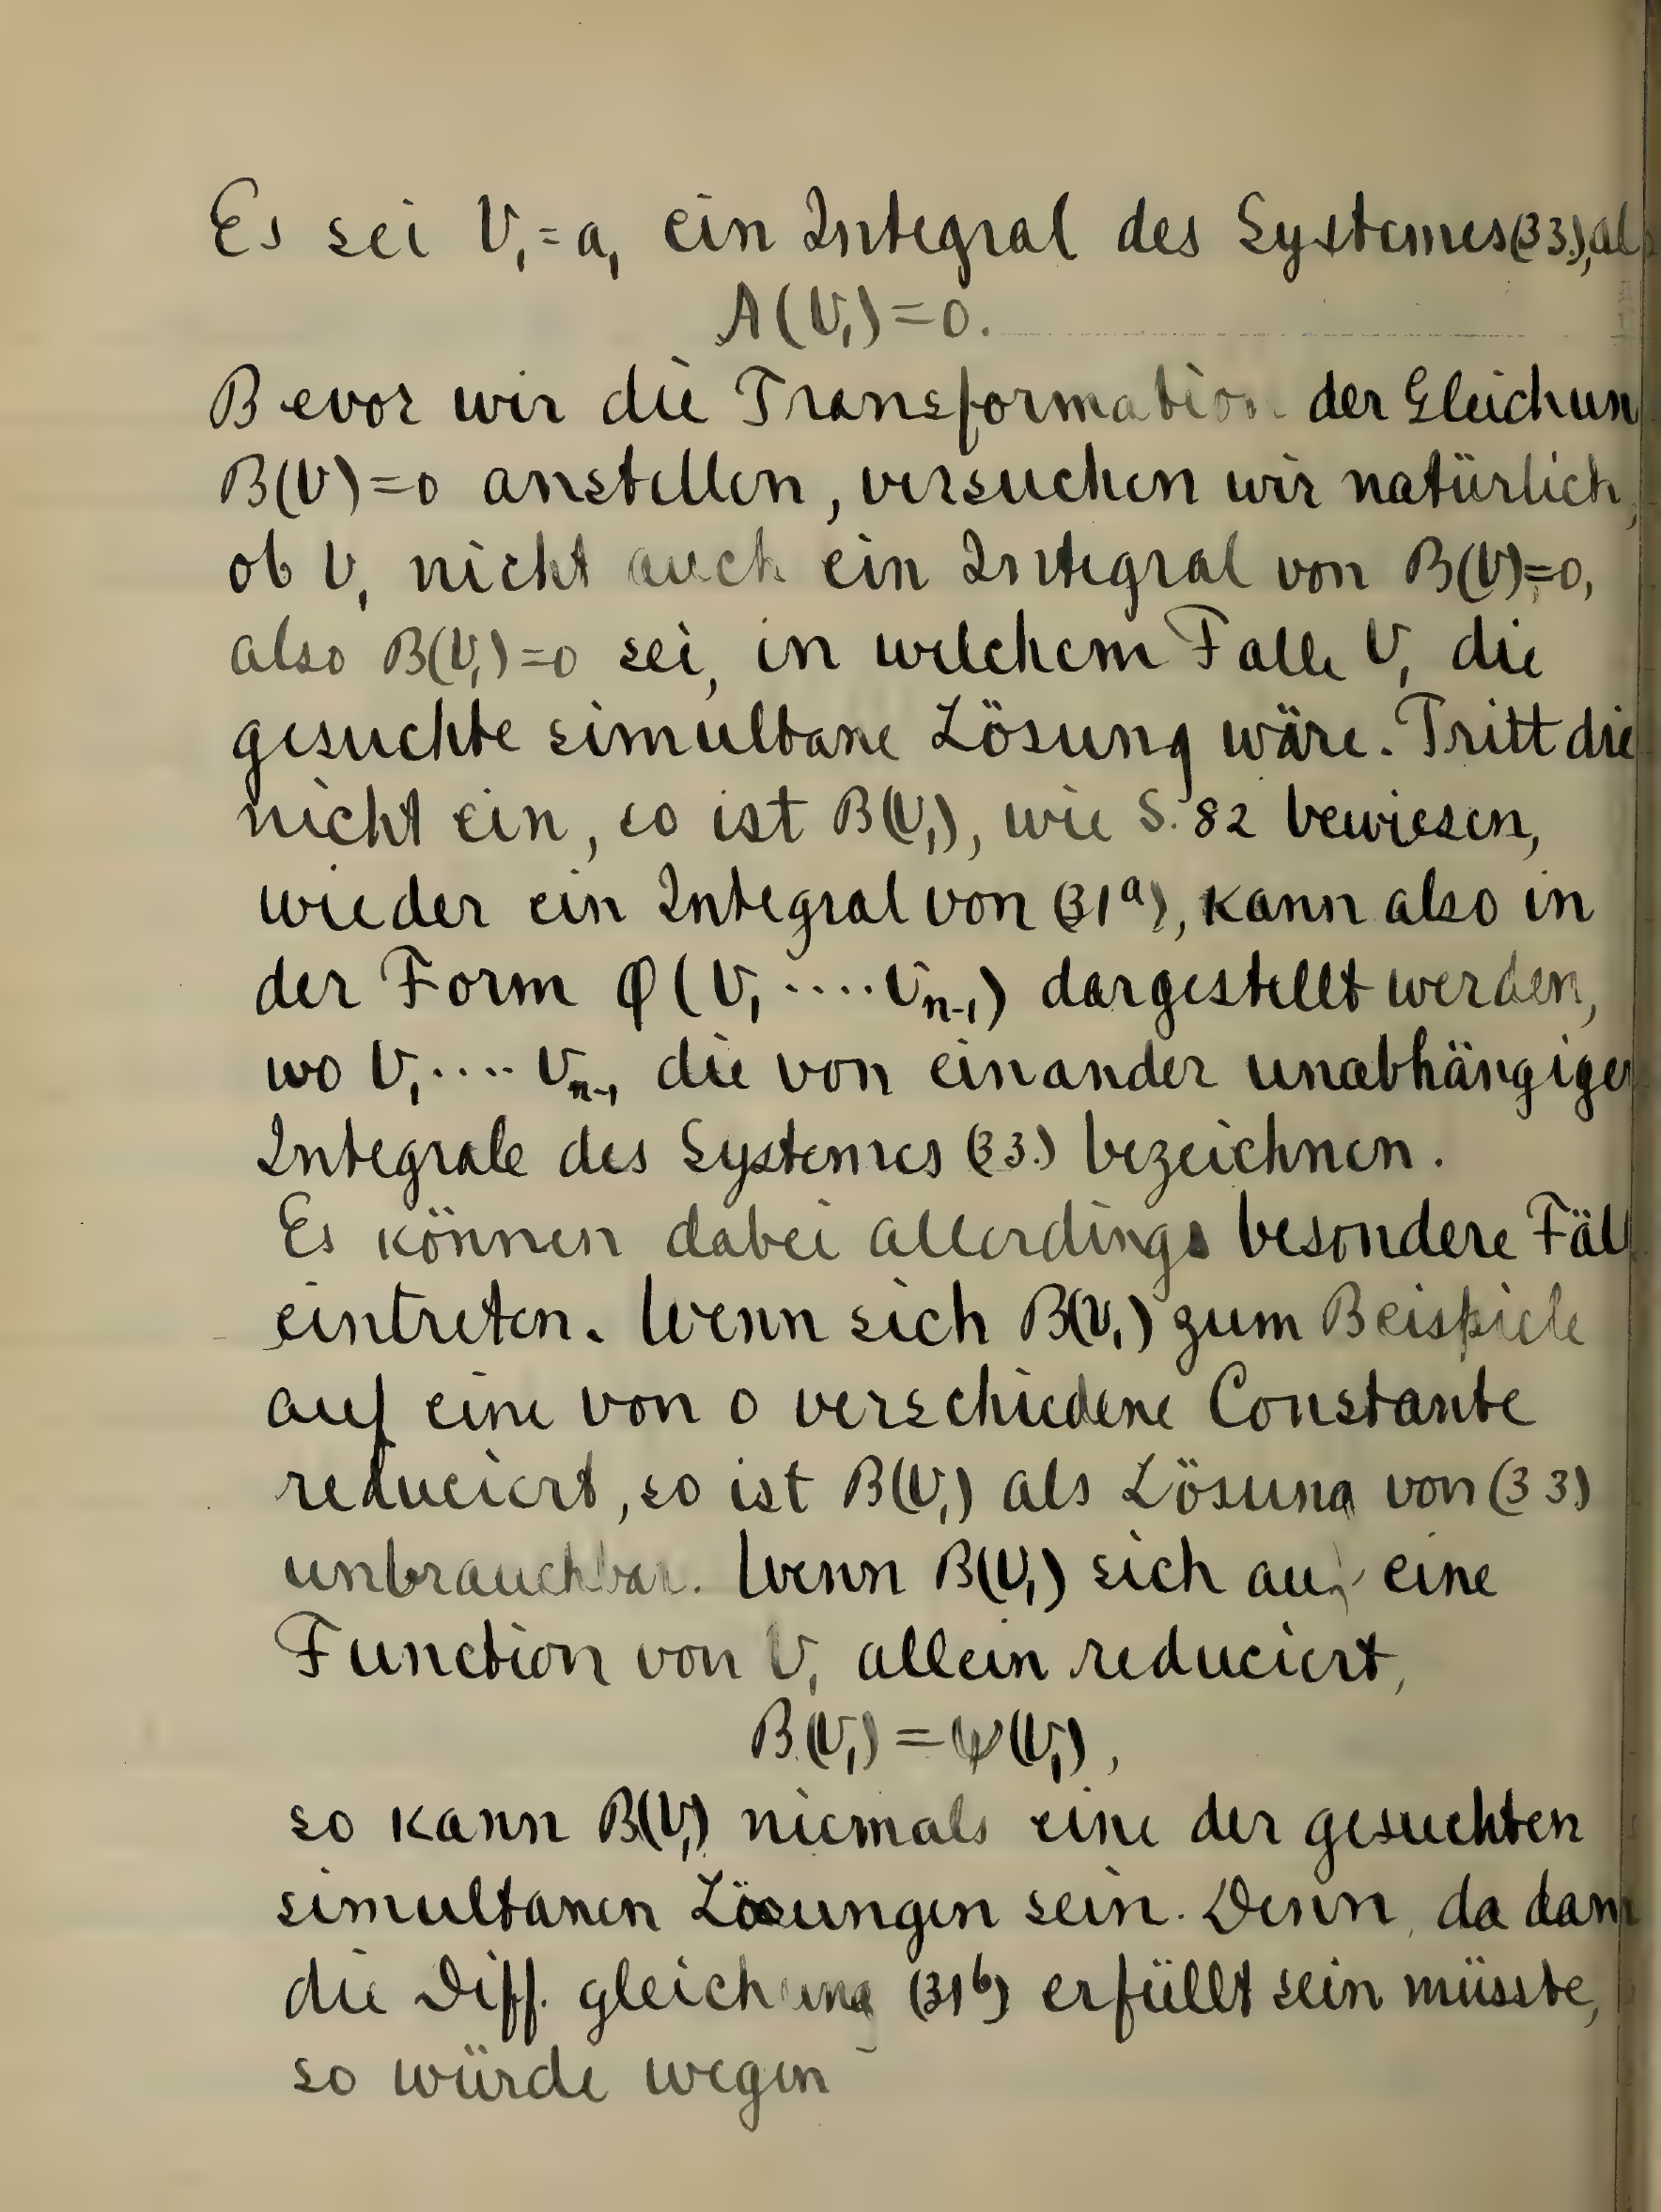 Es sei V₁=a₁ ein Integral des Systemes (33.), als
A(V₁)=0.
Bevor wir die Transformation der Gleichun
B(V)=0 anstellen, versuchen wir natürlich,
ob V₁ nicht auch ein Integral von B(V)=0,
also B(V₁)=0 sei, in welchem Falle V₁ die
gesuchte simultane Lösung wäre. Tritt die
nicht ein, so ist B(V₁), wie S. 82 bewiesen,
wieder ein Integral von (31ᵃ), kann also in
der Form φ(V₁ ···· Vₙ₋₁) dargestellt werden,
wo V₁ ···· Vₙ₋₁ die von einander unabhängigen
Integrale des Systemes (33.) bezeichnen.
Es können dabei allerdings besondere Fäll
eintreten. Wenn sich B(V₁) zum Beispiele
auf eine von 0 verschiedene Constante
reduciert, so ist B(V₁) als Lösung von (33)
unbrauchbar. Wenn B(V₁) sich auf eine
Function von V₁ allein reduciert,
B(V₁) = ψ(V₁),
so kann B(V₁) niemals eine der gesuchten
simultanen Lösungen sein. Denn, da dann
die Diff. gleichung (31ᵇ) erfüllt sein müsste,
so würde wegen